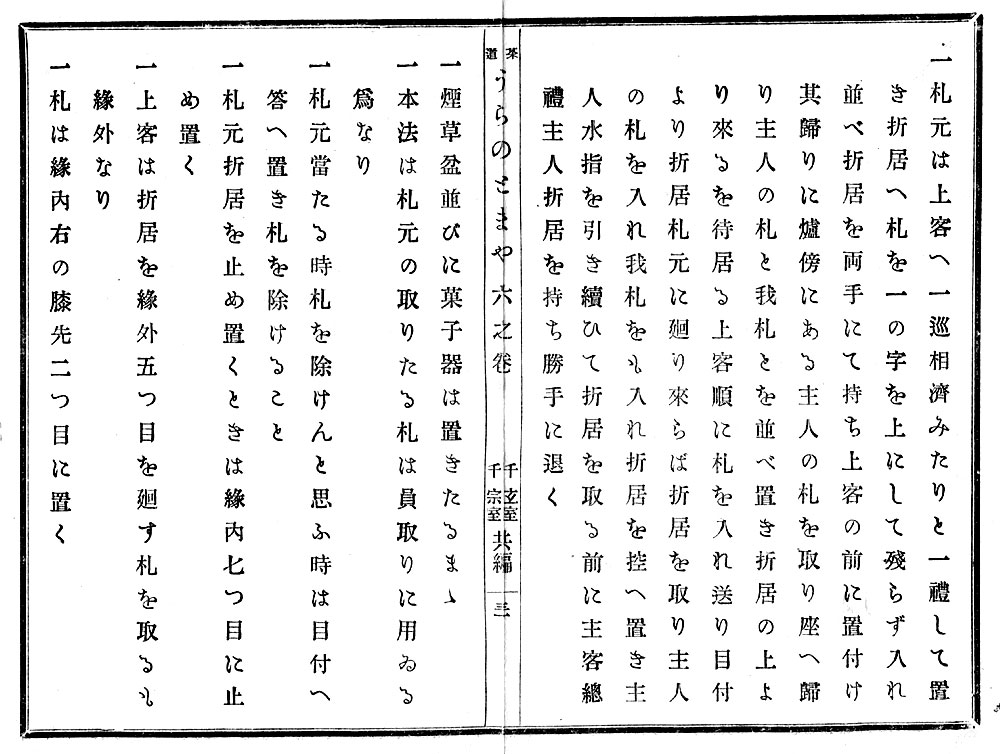 一札元は上客へ一巡相濟みたりと一禮して置
き折居へ札を一の字を上にして殘らず入れ
並べ折居を両手にて持ち上客の前に置付け
其歸りに爐傍にある主人の札を取り座へ歸
り主人の札と我札とを並べ置き折居の上よ
り來るを待居る上客順に札を入れ送り目付
より折居札元に廻り來らば折居を取り主人
の札を入れ我札をも入れ折居を控へ置き主
人水指を引き續ひて折居を取る前に主客總
禮主人折居を持ち勝手に退く
茶道 うらのとまや 六之卷 千玄室 千宗室 共編 三
一煙草盆並びに菓子器は置きたるまゝ
一本法は札元の取りたる札は員取りに用ゐる
爲なり
一札元當たる時札を除けんと思ふ時は目付へ
答へ置き札を除けること
一札元折居を止め置くときは緣內七つ目に止
め置く
一上客は折居を緣外五つ目を廻す札を取るも
緣外なり
一札は緣內右の膝先二つ目に置く